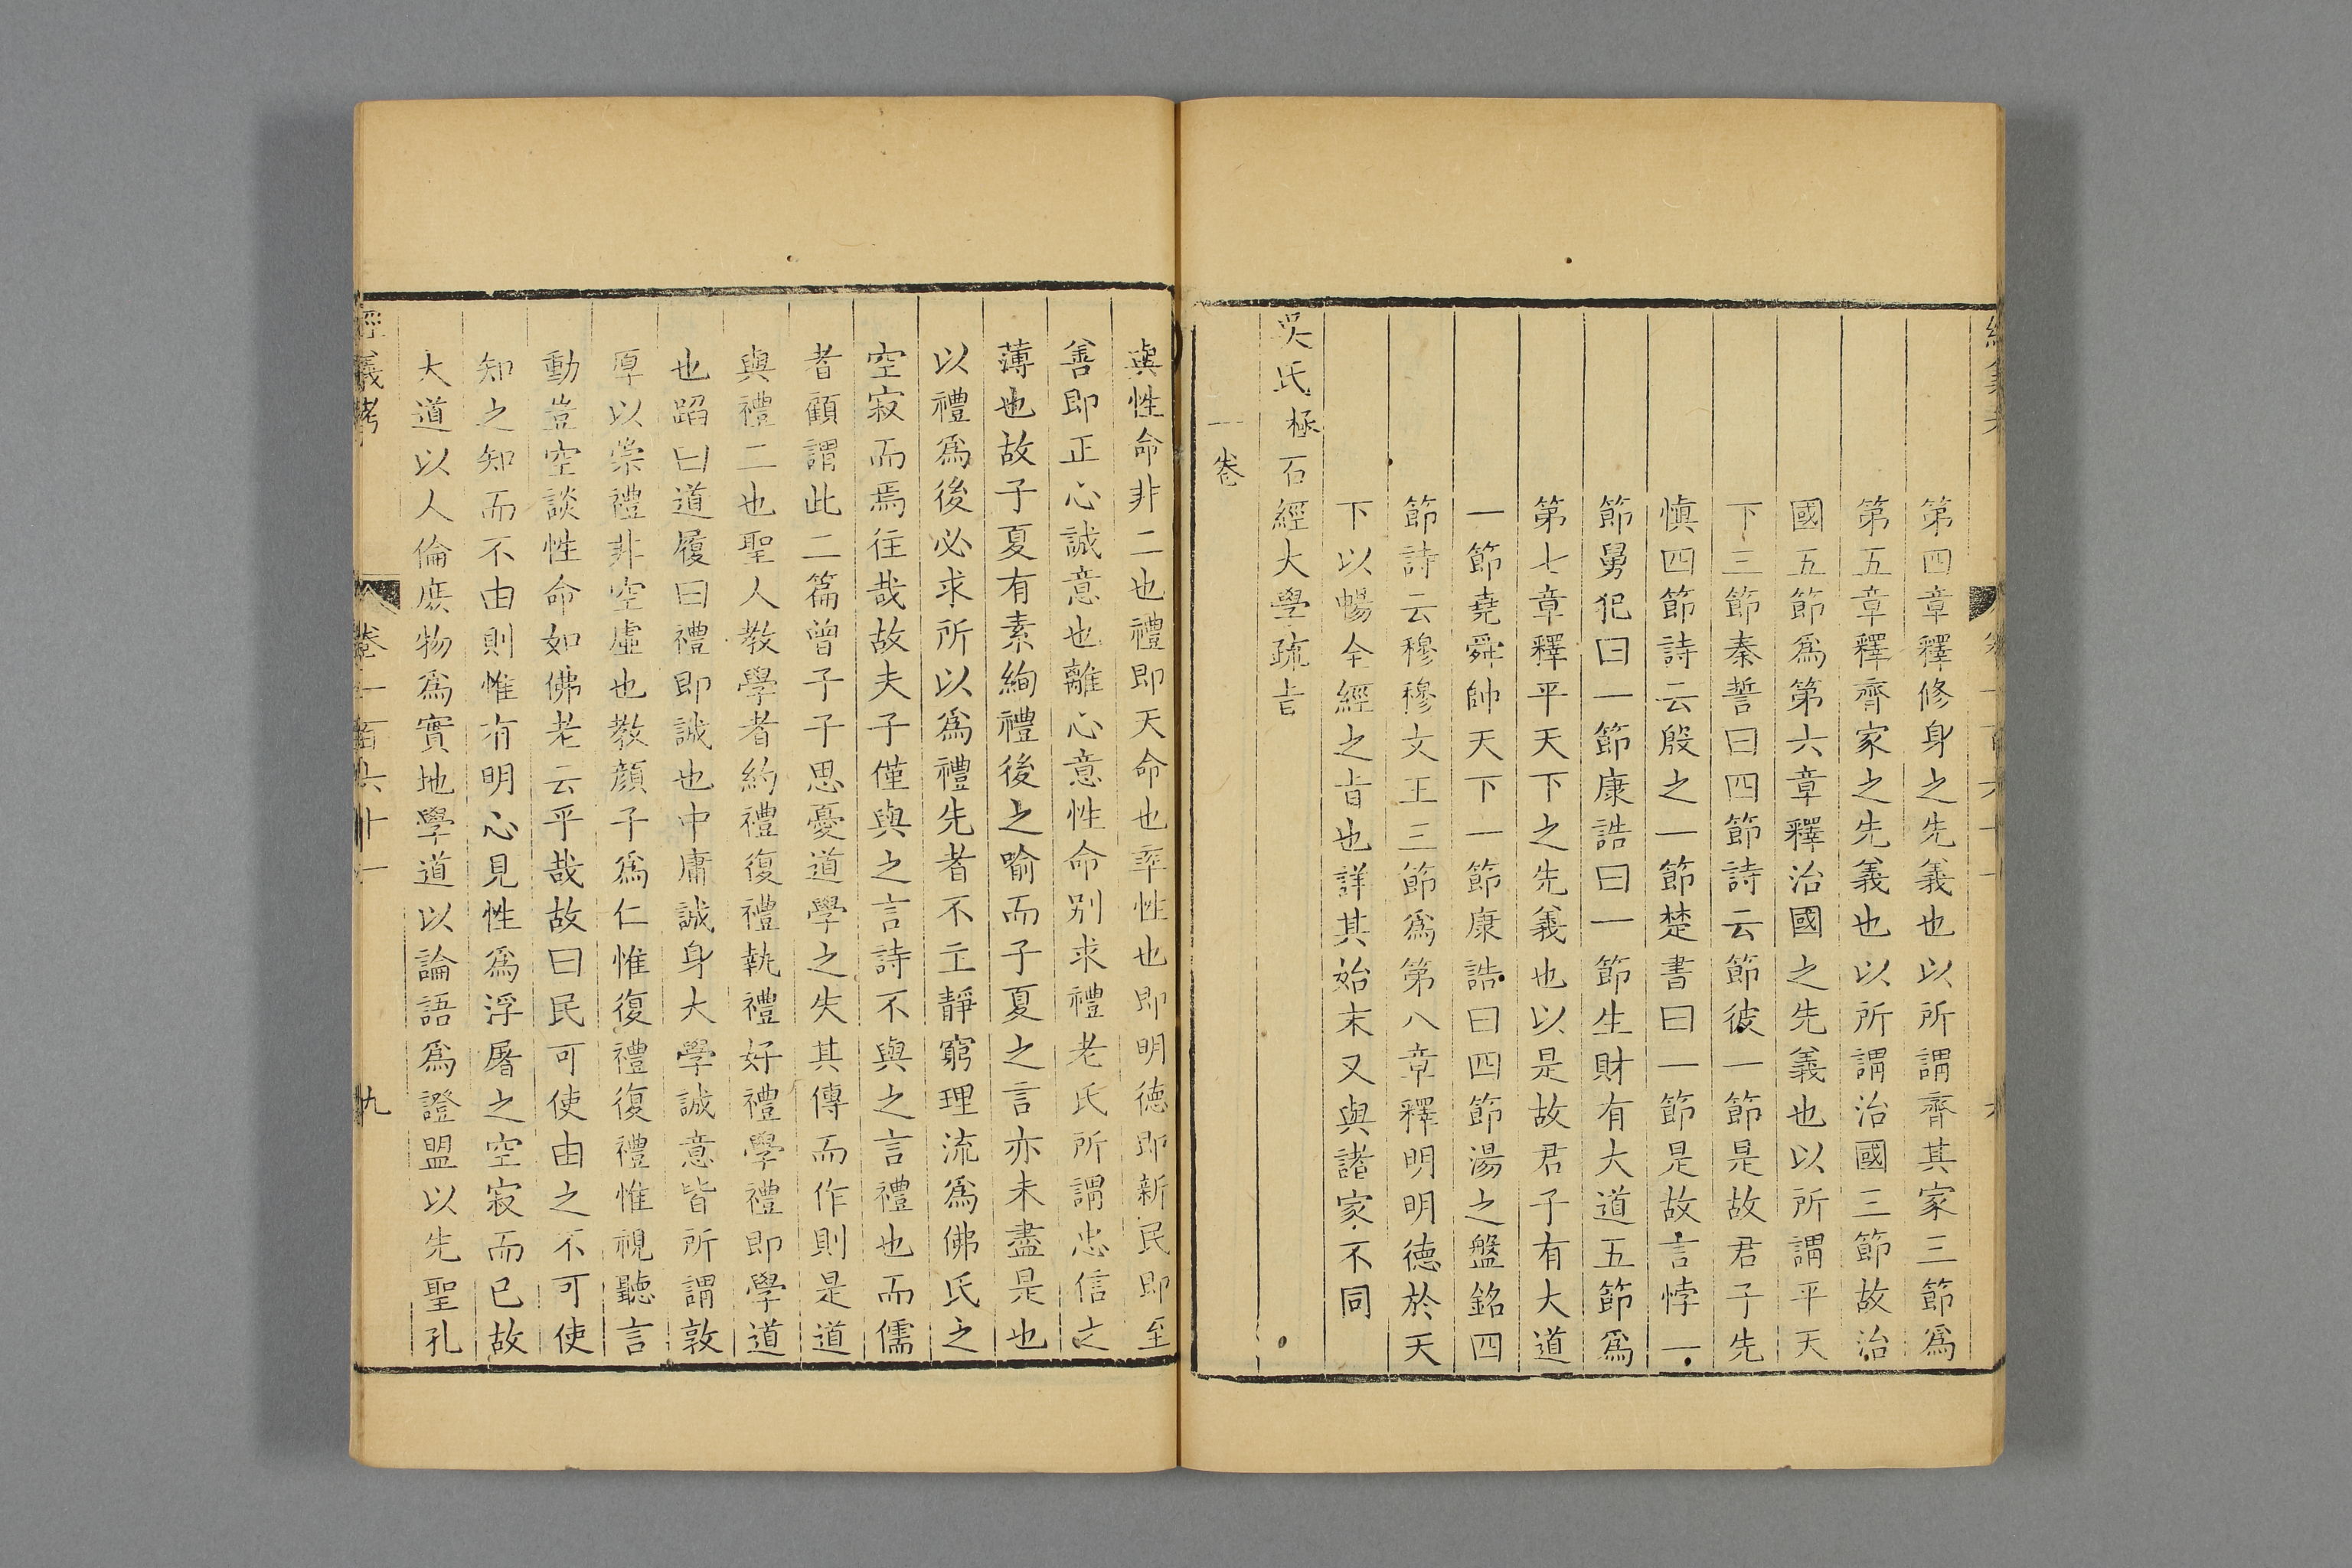 第四章釋修身之先義也以所謂齊其家三節爲
第五章釋齊家之先義也以所謂治國三節故治
國五節爲第六章釋治國之先義也以所謂平天
下三節秦誓曰四節詩云節彼一節是故君子先
愼四節詩云殷之一節楚書曰一節是故言悖一
節舅犯曰一節康誥曰一節生財有大道五節爲
第七章釋平天下之先義也以是故君子有大道
一節堯舜帥天下一節康誥曰四節湯之盤銘四
節詩云穆穆文王三節爲第八章釋明明德於天
下以暢全經之旨也詳其始末又與諸家不同
吳氏極石經大學疏旨
一卷
與性命非二也禮即天命也率性也即明德即新民即至
善即正心誠意也離心意性命别求禮老氏所謂忠信之
薄也故子夏有素絢禮後之喻而子夏之言亦未盡是也
以禮爲後必求所以爲禮先者不主靜窮理流爲佛氏之
空寂而焉往哉故夫子僅與之言詩不與之言禮也而儒
者顧謂此二篇曾子子思憂道學之失其傳而作則是道
與禮二也聖人教學者約禮復禮執禮好禮學禮即學道
也蹈曰道履曰禮即誠也中庸誠身大學誠意皆所謂敦
厚以崇禮非空虛也教顔子爲仁惟復禮復禮惟視聽言
動豈空談性命如佛老云乎哉故曰民可使由之不可使
知之知而不由則惟有明心見性爲浮屠之空寂而已故
大道以人倫庶物爲實地學道以論語爲證盟以先聖孔
經義考
卷一百六十一
九